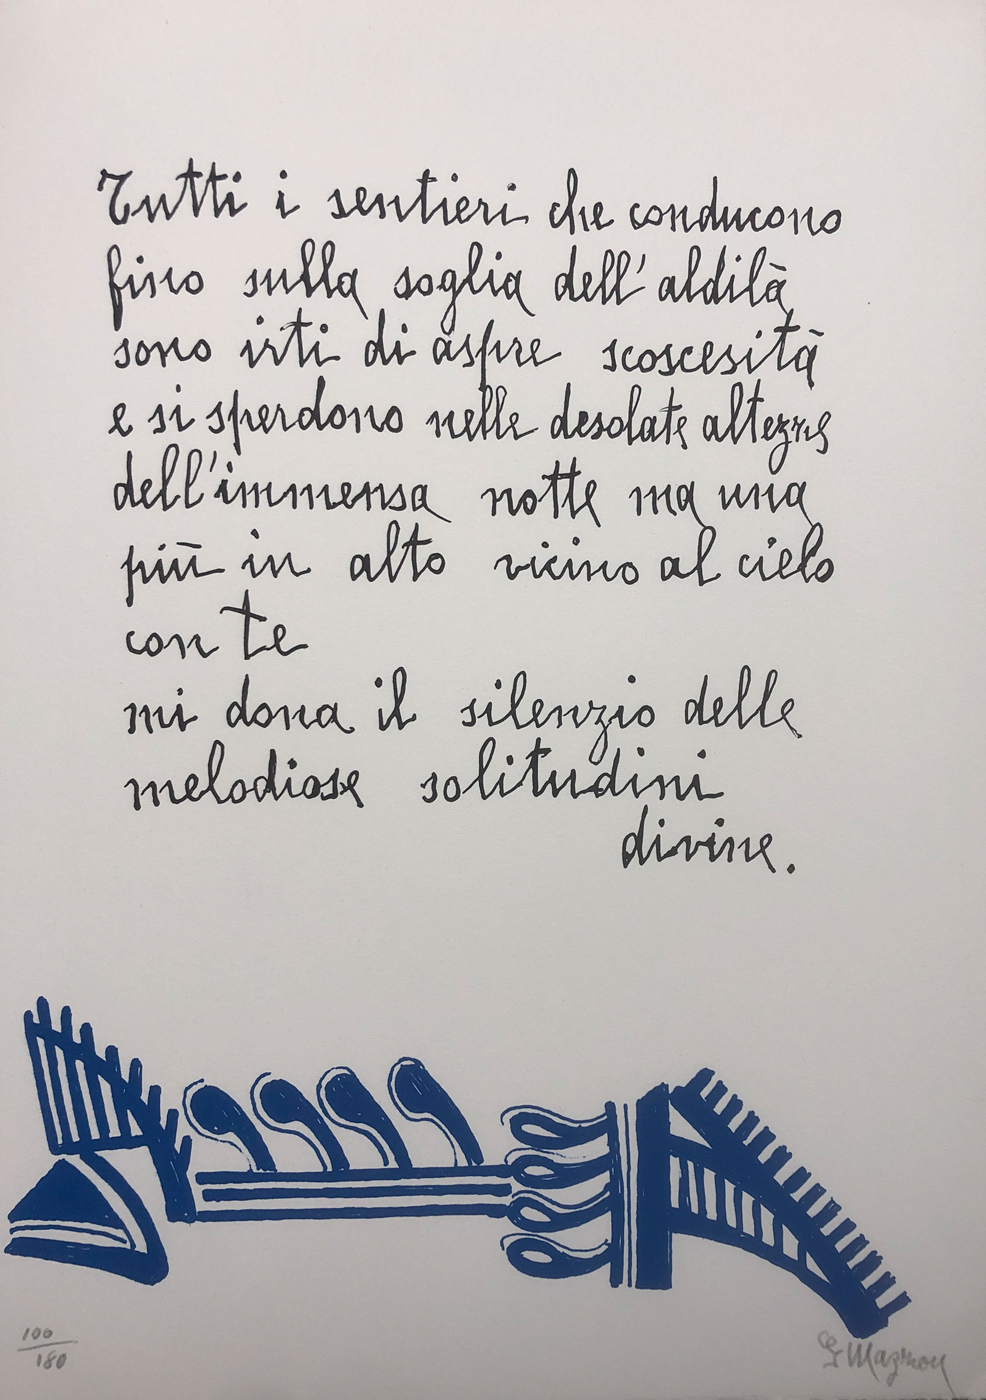 Tutti i sentieri che conducono
fino sulla soglia dell'aldilà
sono irti di aspre scoscesità
e si sperdono nelle desolate altezze
dell'immensa notte ma una
più in alto vicino al cielo
con te
mi dona il silenzio delle
melodiose solitudini
divine.
100
180